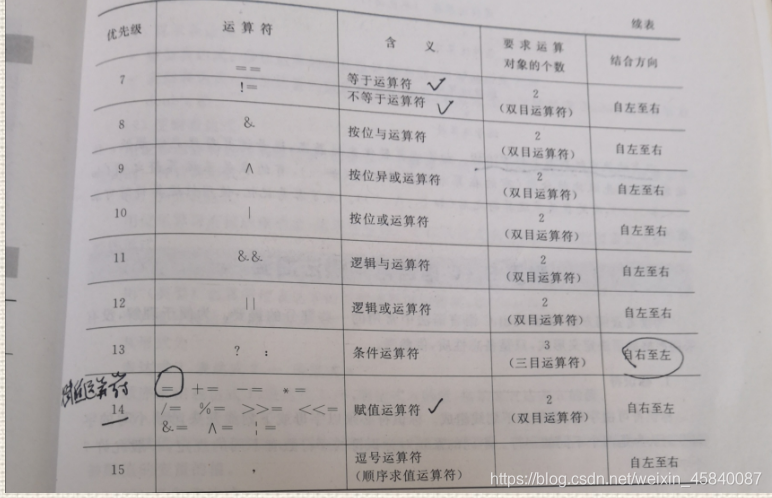 续表
优先级 运算符 含义 要求运算对象的个数 结合方向
7 == 等于运算符 2 (双目运算符) 自左至右
!= 不等于运算符
8 & 按位与运算符 2 (双目运算符) 自左至右
9 ∧ 按位异或运算符 2 (双目运算符) 自左至右
10 | 按位或运算符 2 (双目运算符) 自左至右
11 && 逻辑与运算符 2 (双目运算符) 自左至右
12 || 逻辑或运算符 2 (双目运算符) 自左至右
13 ? : 条件运算符 3 (三目运算符) 自右至左
赋值运算符
14 = += -= *= 赋值运算符 2 (双目运算符) 自右至左
/= %= >>= <<=
&= ∧= ¦=
15 , 逗号运算符 自左至右
(顺序求值运算符)
https://blog.csdn.net/weixin_45840087